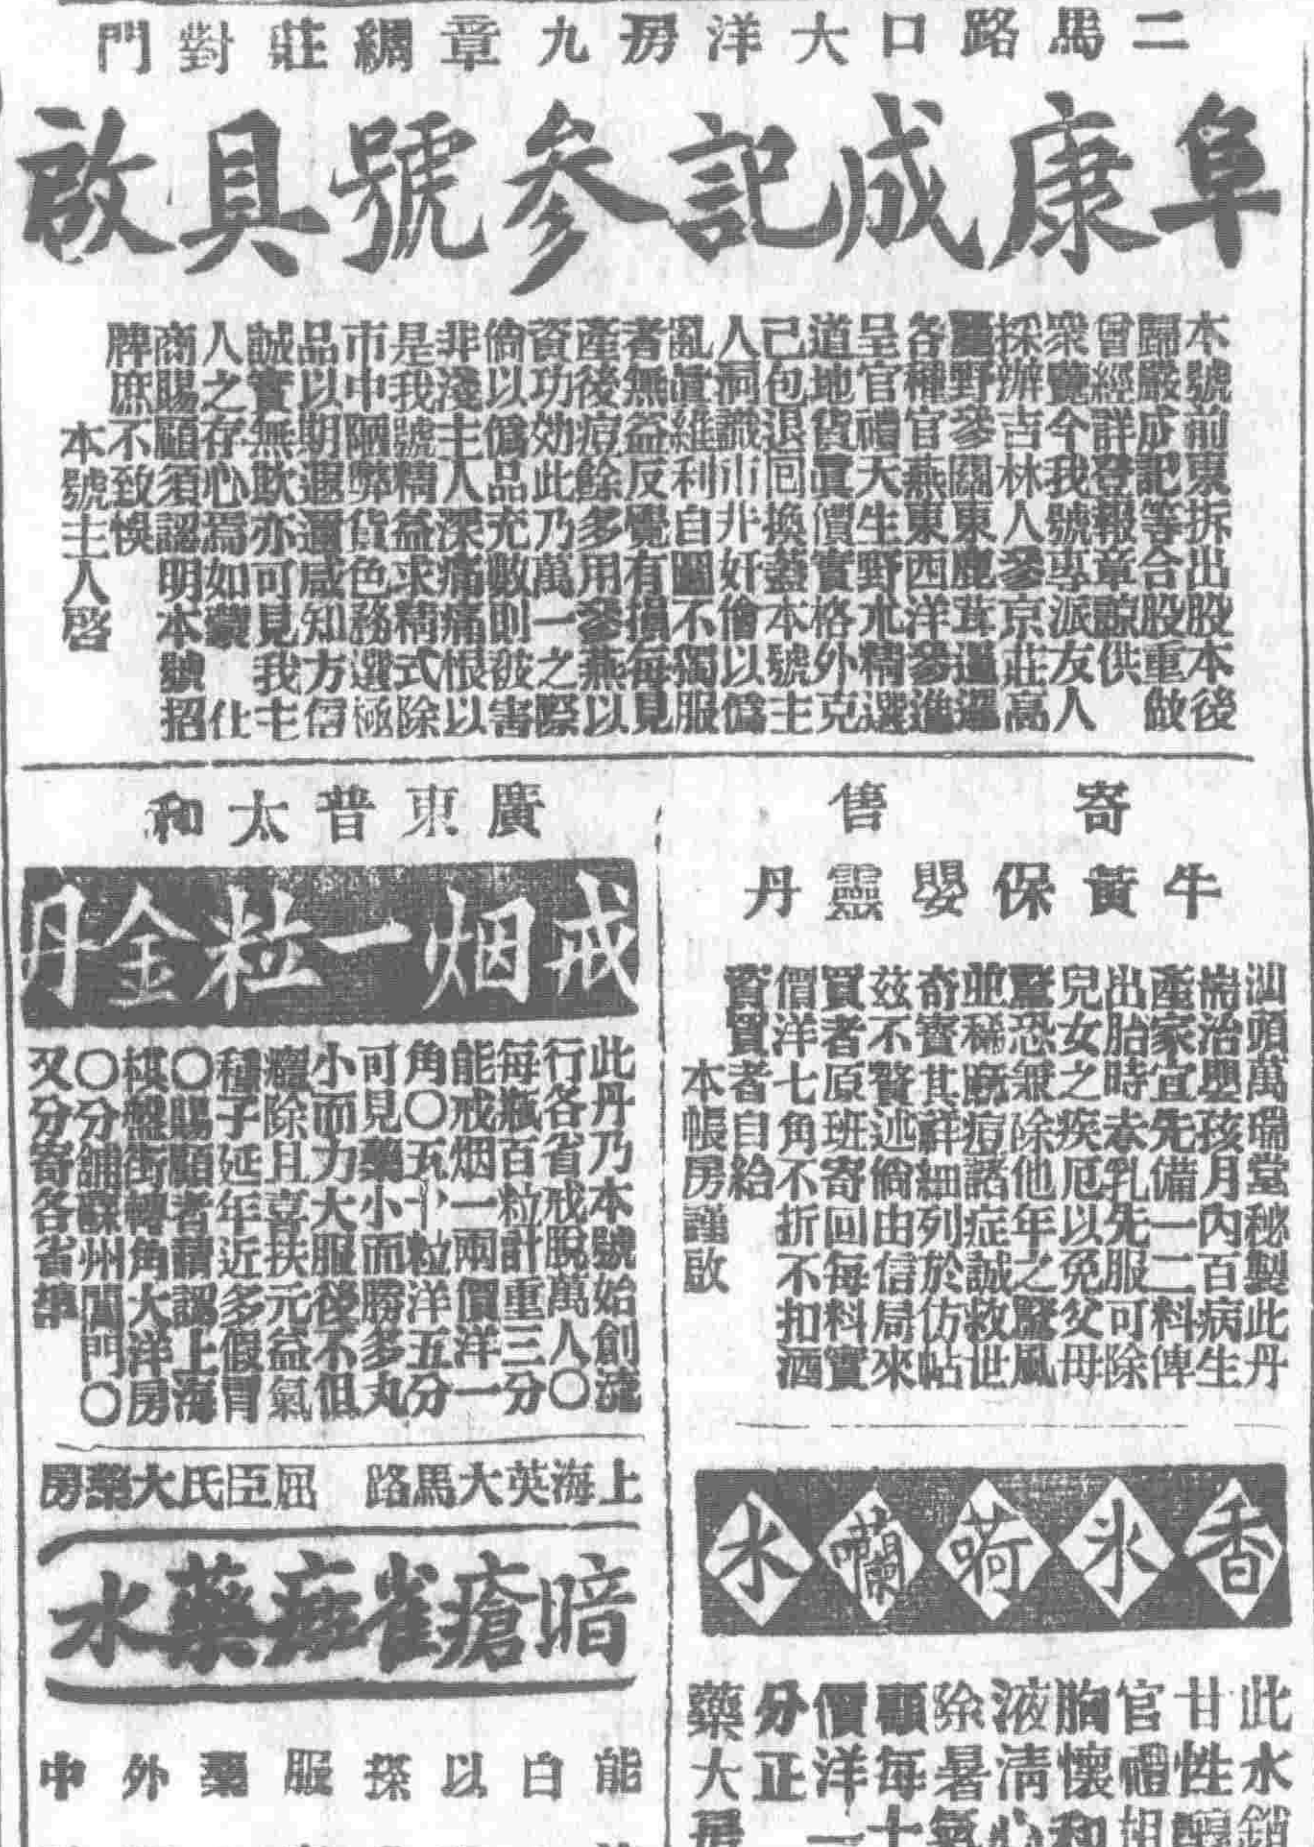 二馬路口大洋房九章綢莊對門
阜康成記參號具啟
本號前東拆出股本後
歸嚴成記等合股重做
曾經詳登報章諒供
衆覽今我號專派友人
採辦吉林人參京莊高
麗野參關東鹿茸暹邏
各種官燕東西洋參進
呈官禮天生野朮精選
道地貨眞價實格外克
己包退回換蓋本號主
人洞識市井奸儈以僞
亂眞維利自圖不獨服
者無益反覺有損每見
產後痘餘多用參燕以
資功効此乃萬一之際
倘以僞品充數則彼害
非淺主人深痛痛恨以
是我號精益求精式除
市中陋弊貨色務選極
品以期遐邇咸知方信
誠實無欺亦可見我主
人之存心焉如蒙 仕
商賜顧須認明本號招
牌庶不致悞
本號主人啓
寄售
牛黃保嬰靈丹
汕頭萬瑞堂秘製此丹
耑治嬰孩月內百病生
產家宜先備一二料俾
出胎時未乳先服可除
兒女之疾厄以免父母
驚恐兼除他年之驚風
並稀痲痘諸症誠救世
奇寳其詳細列於仿帖
茲不贅述倘由信局來
買者原班寄回每料實
價洋七角不折不扣酒
資買者自給
本帳房謹啟
廣東普太和
戒烟一粒金丹
此丹乃本號始創流
行各省戒脫萬人〇
每瓶百粒計重三分
能戒烟一兩價洋一
角〇五十粒洋五分
可見藥小而勝多丸
小而力大服後不但
癮除且喜扶元益氣
種子延年近多假冒
〇賜顧者請認上海
棋盤街轉角大洋房
〇分舖蘇州閶門〇
又分寄各省埠
香氷荷蘭水
此水銷
甘性
官禮
胸懷和
液清心
除暑氣
顧每十
價洋一
分正
藥大房
上海英大馬路 屈臣氏大藥房
暗瘡雀斑藥水
能白以搽服藥外中